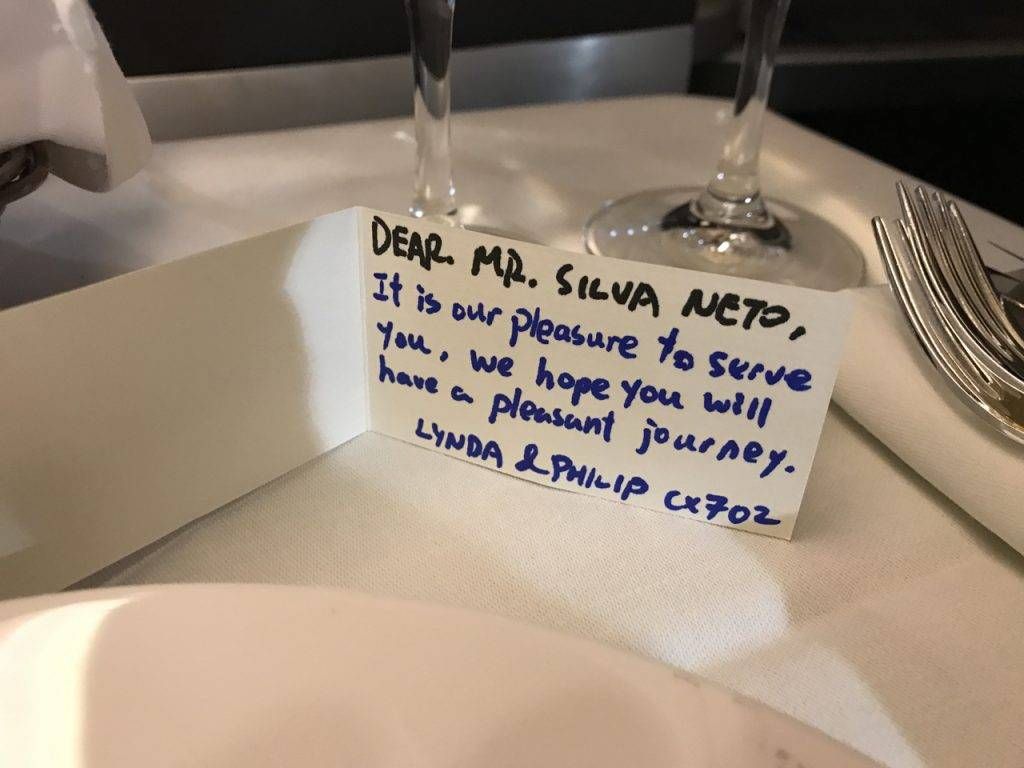 DEAR. MR. SILVA NETO,
It is our pleasure to serve
you, we hope you will
have a pleasant journey.
LYNDA & PHILIP CX702